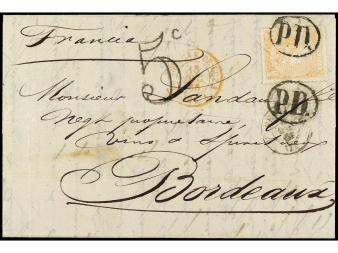 Francia
5 c
P.D.
P.D.
Monsieur Landau
Negt propriétaire
vins &
Bordeaux